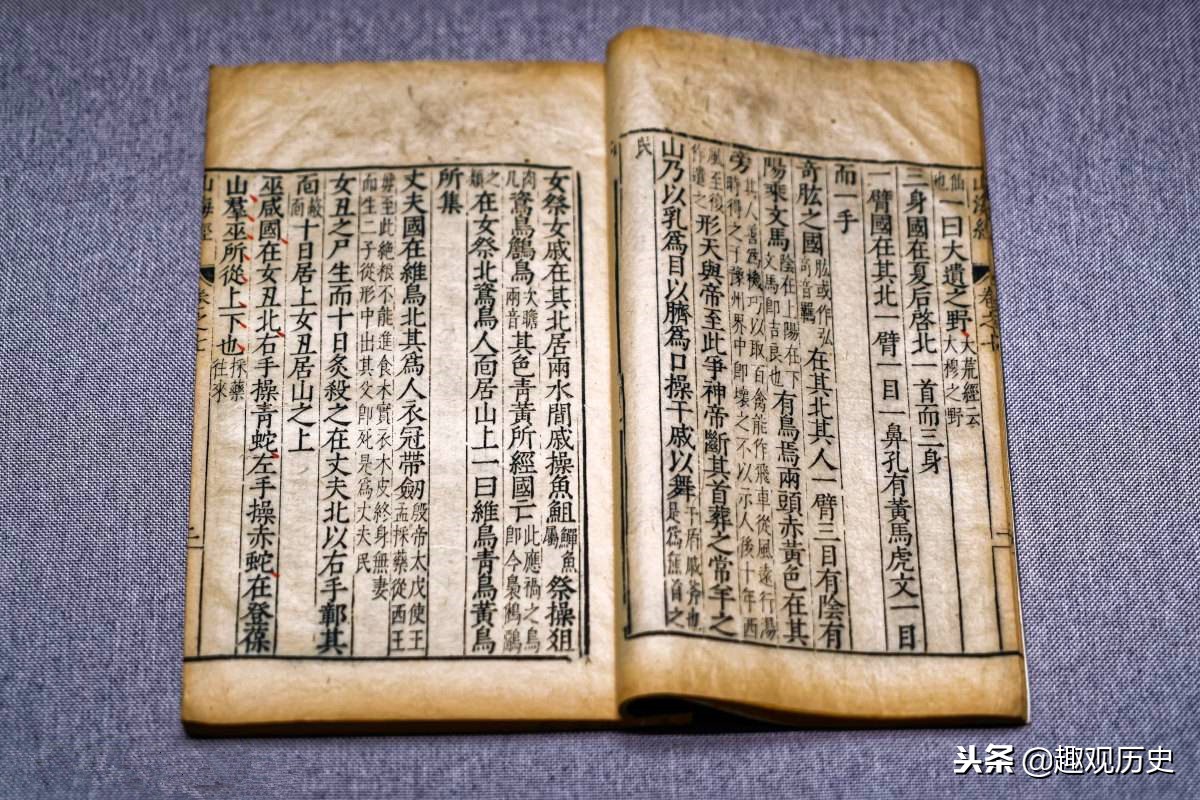 山海經 卷之七 二
仙也一曰大遺之野大荒經云大穆之野
三身國在夏后啓北一首而三身
一臂國在其北一臂一目一鼻孔有黃馬虎文一目
而一手
奇肱之國肱或作弘奇音羈在其北其人一臂三目有陰有
陽乘文馬陰在上陽在下文馬即吉良也有鳥焉兩頭赤黃色在其
旁其人善爲機巧以取百禽能作飛車從風遠行湯時得之于豫州界中即壞之不以示人後十年西風至復作遣之形天與帝至此爭神帝斷其首葬之常羊之
山乃以乳爲目以臍爲口操干戚以舞干盾戚斧也是爲無首之民
女祭女戚在其北居兩水間戚操魚䱉鱓魚屬祭操俎
肉几鴍鳥鶬鳥次瞻兩音其色青黃所經國亡此應禍之鳥即今梟鵂鶹
之類在女祭北鴍鳥人面居山上一曰維鳥青鳥黃鳥
所集
丈夫國在維鳥北其爲人衣冠帶劒殷帝太戊使王孟採藥從西王
母至此絶糧不能進食木實衣木皮終身無妻而生二子從形中出其父即死是爲丈夫民
女丑之尸生而十日炙殺之在丈夫北以右手鄣其
面蔽面十日居上女丑居山之上
巫咸國在女丑北右手操青蛇左手操赤蛇在登葆
山羣巫所從上下也採藥往來
山海經 卷之七 二
头条 @趣观历史